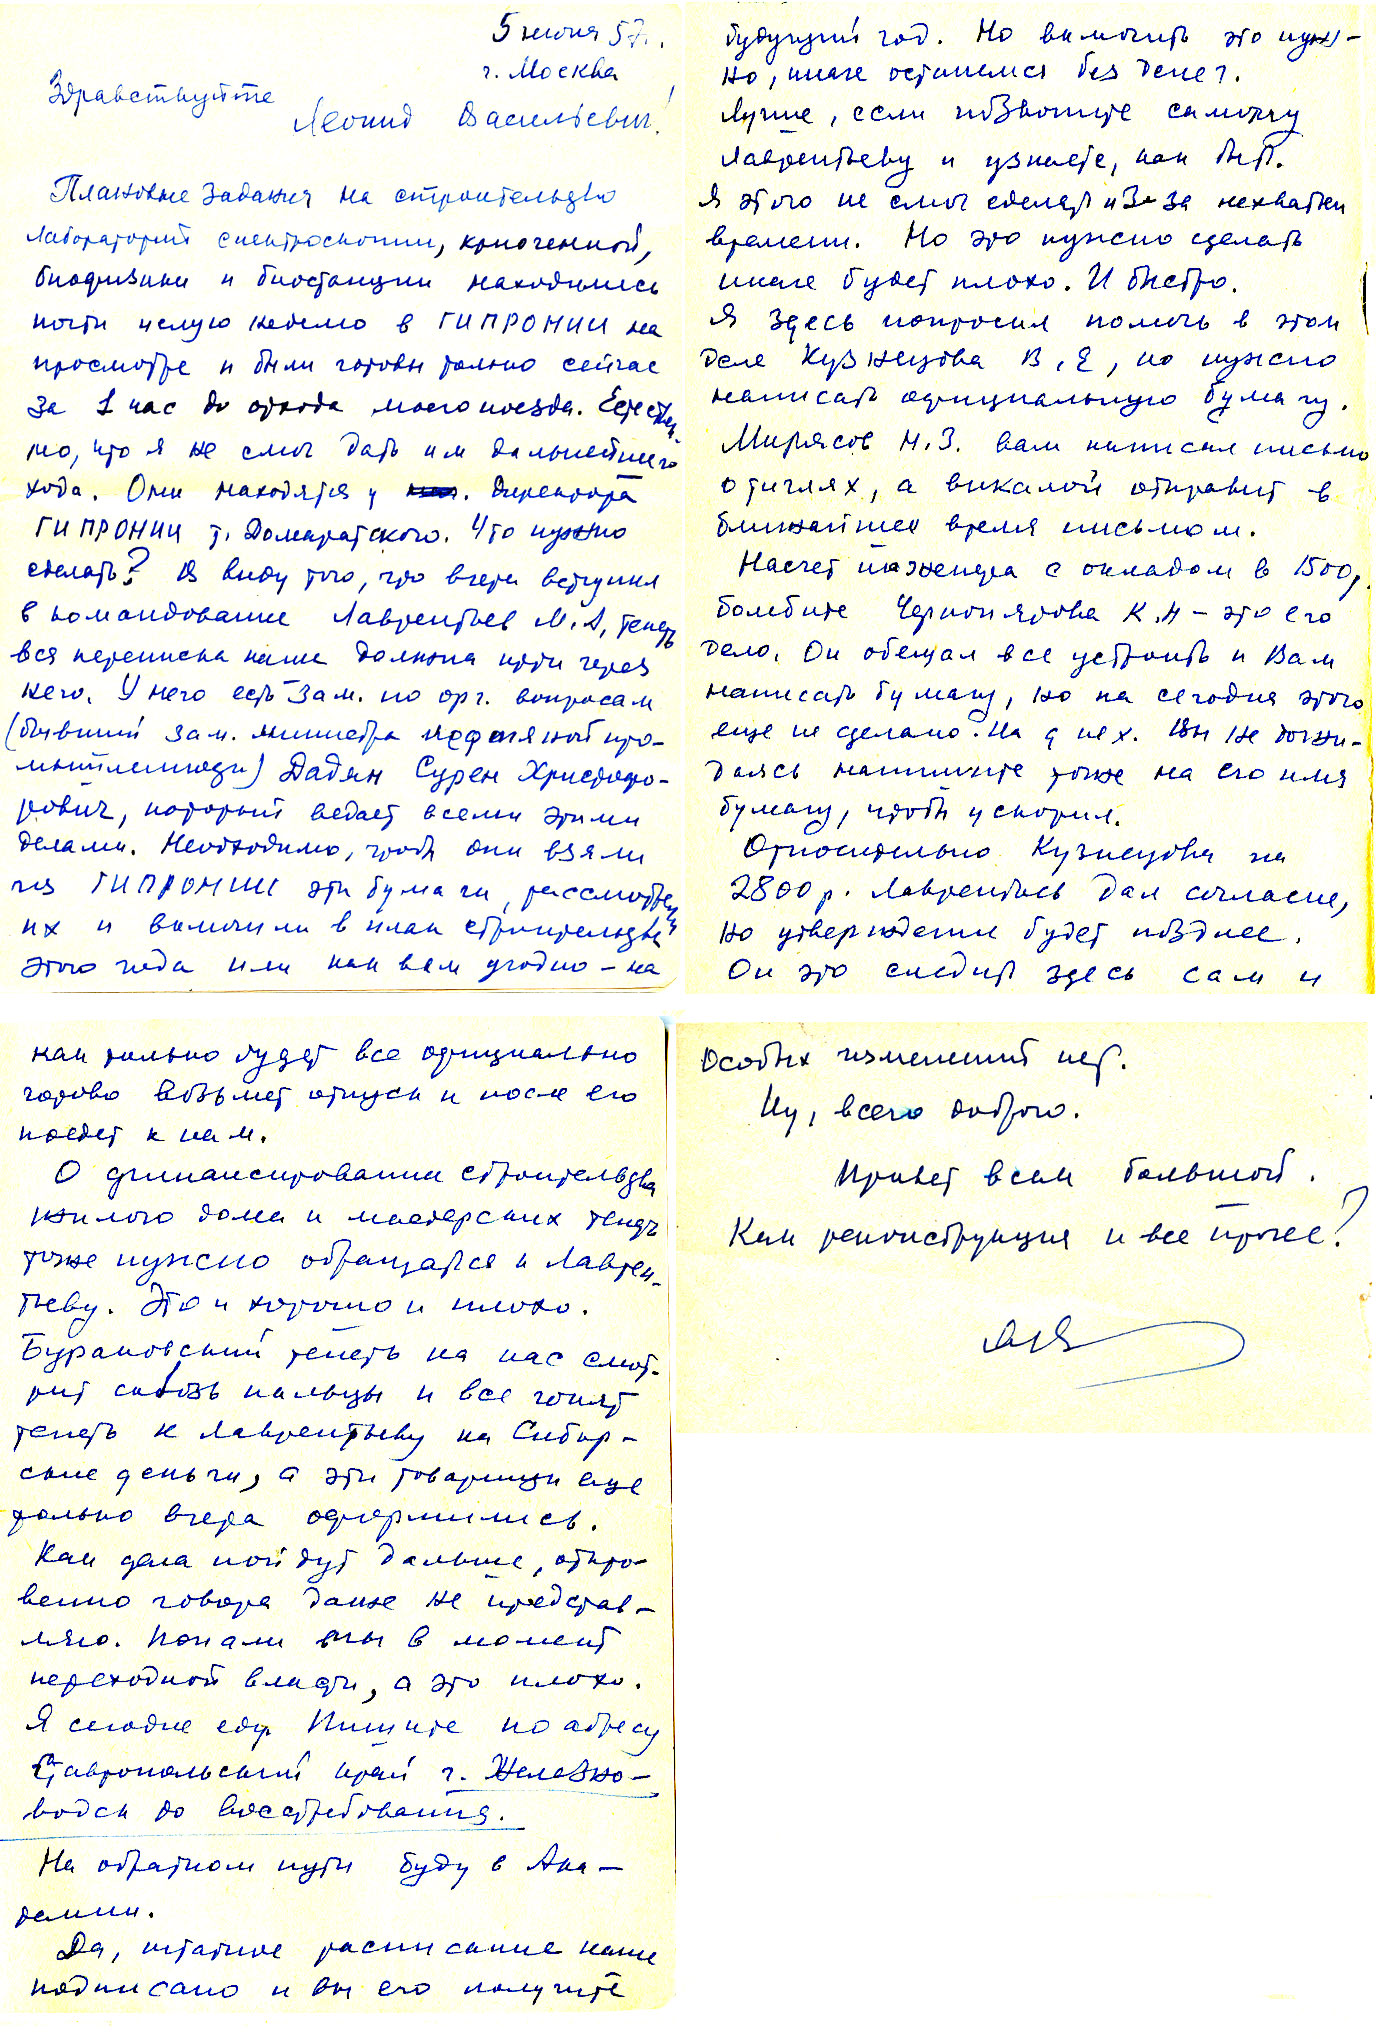 5 июня 57г.
г. Москва
Здравствуйте
Леонид Васильевич!
Плановые задания на строительство
лабораторий спектроскопии, криогенной,
биофизики и биостанции находились
почти целую неделю в ГИПРОНИИ на
просмотре и были готовы только сейчас
за 1 час до отхода моего поезда. Естествен-
но, что я не смог дать им дальнейшего
хода. Они находятся у директора
ГИПРОНИИ т. Домаратского. Что нужно
сделать? В виду того, что вчера вступил
в командование Лаврентьев М.А, теперь
вся переписка наша должна идти через
него. У него есть зам. по орг. вопросам
(бывший зам. министра нефтяной про-
мышленности) Дадян Сурен Христофо-
рович, который ведает всеми этими
делами. Необходимо, чтобы они взяли
из ГИПРОНИИ эти бумаги, рассмотрели
их и включили в план строительства
этого года или как вам угодно – на
будущий год. Но включить это нуж-
но, иначе останемся без денег.
Лучше, если позвоните самому
Лаврентьеву и узнаете, как быть.
Я этого не смог сделать из-за нехватки
времени. Но это нужно сделать
иначе будет плохо. И быстро.
Я здесь попросил помочь в этом
деле Кузнецова В.Е, но нужно
написать официальную бумагу.
Мирясов Н.З. вам написал письмо
о тиглях, а викалой отправит в
ближайшее время письмом.
Насчет инженера с окладом в 1500р.
бомбите Черноярова К.Н – это его
дело. Он обещал все устроить и Вам
написать бумагу, но на сегодня этого
еще не сделано. На днях. Вы не дожи-
даясь напишите тоже на его имя
бумагу, чтобы ускорил.
Относительно Кузнецова на
2800р. Лаврентьев дал согласие,
но утверждение будет позднее.
Он это следит здесь сам и
как только будет все официально
готово возьмет отпуск и после его
поедет к нам.
О финансировании строительства
жилого дома и мастерских теперь
тоже нужно обращаться к Лаврен-
тьеву. Это и хорошо и плохо.
Бурановский теперь на нас смот-
рит сквозь пальцы и все гонят
теперь к Лаврентьеву на Сибир-
ские деньги, а эти товарищи еще
только вчера оформились.
Как дела пойдут дальше, откро-
венно говоря даже не представ-
ляю. Попали мы в момент
переходной власти, а это плохо.
Я сегодня еду. Пишите по адресу
Ставропольский край г. Железно-
водск до востребования.
На обратном пути буду в Ака-
демии.
Да, штатное расписание наше
подписано и вы его получите
Особых изменений нет.
Ну, всего доброго.
Привет всем большой.
Как реконструкция и все прочее?